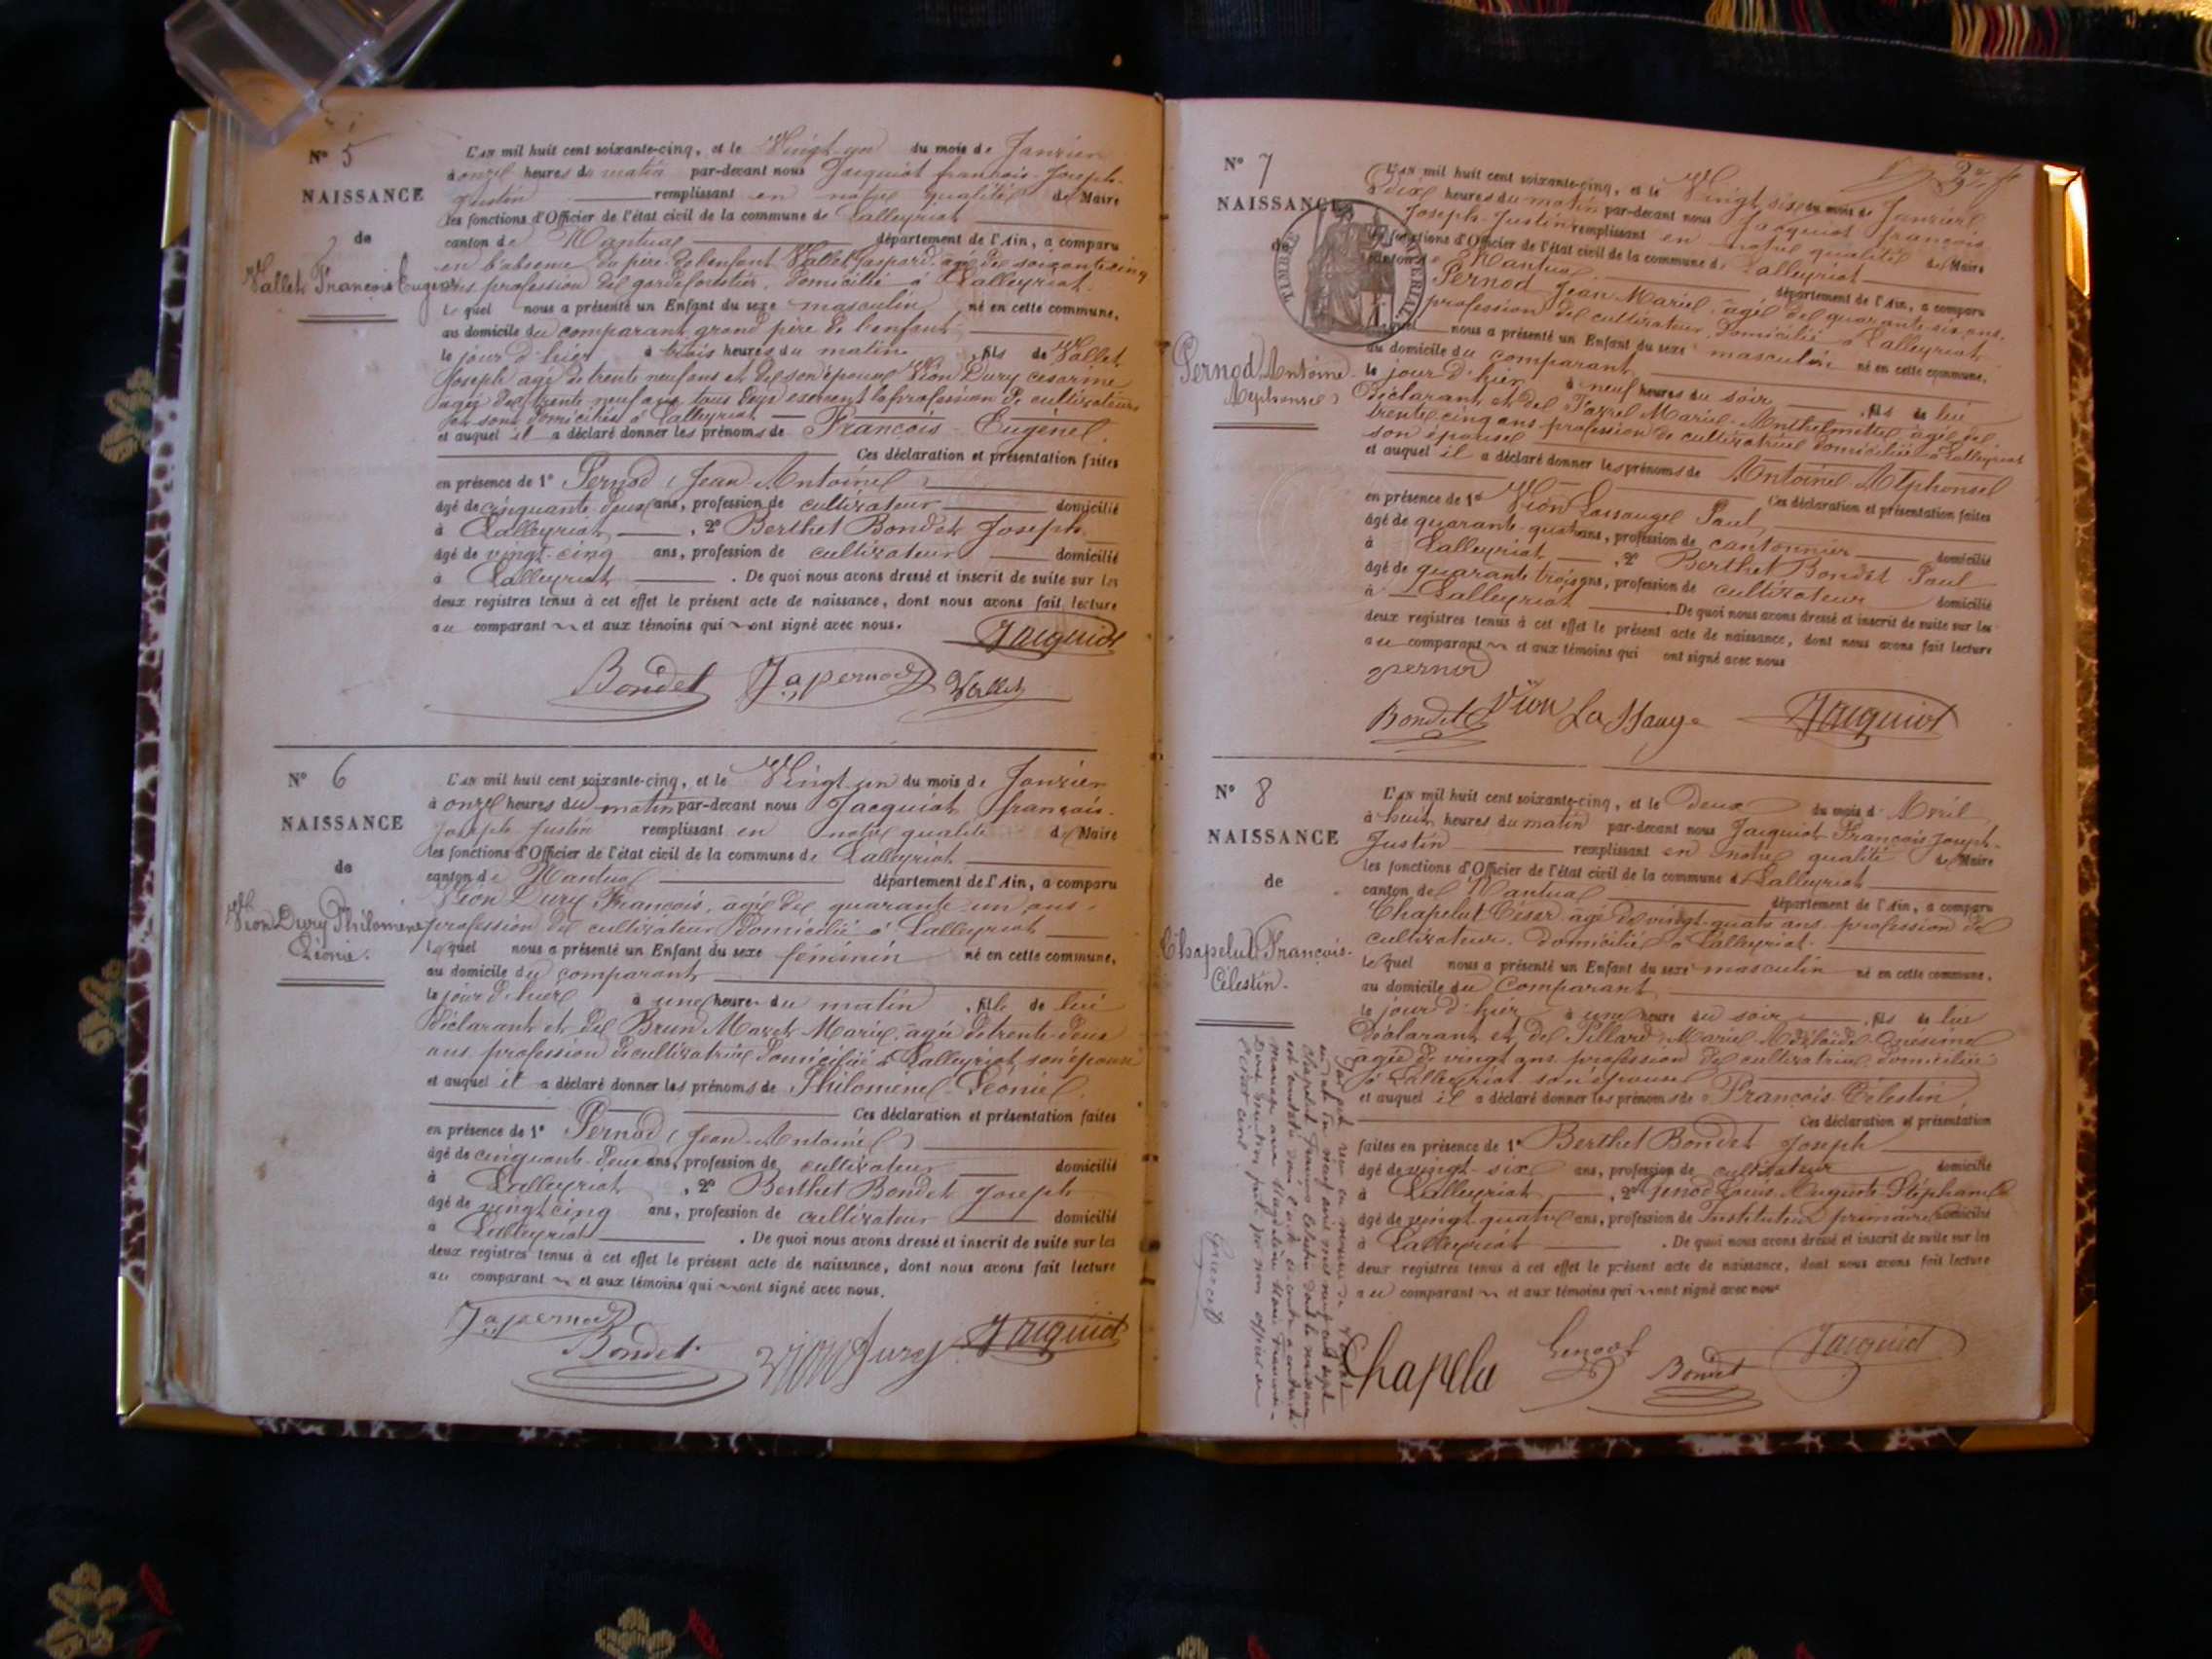 N° 5
NAISSANCE
de
Vallet François Eugène
L'AN mil huit cent soixante-cinq, et le Vingt-un du mois de Janvier
à onze heures du matin par-devant nous Jacquiot françois-Joseph-
Justin remplissant en notre qualité de Maire
les fonctions d'Officier de l'état civil de la commune de Lalleyriat
canton de Nantua département de l'Ain, a comparu
en l'absence du père de l'enfant Vallet Gaspard, âgé de soixante cinq
ans, profession de garde forestier, domicilié à Lalleyriat.
Lequel nous a présenté un Enfant du sexe masculin né en cette commune,
au domicile du comparant grand père de l'enfant
le jour d'hier à trois heures du matin, fils de Vallet
Joseph âgé de trente neuf ans et de son épouse Vion Dury Césarine
âgée de trente neuf ans tous deux exercent la profession de cultivateurs
et sont domiciliés à Lalleyriat
et auquel il a déclaré donner les prénoms de François-Eugène.
Ces déclaration et présentation faites
en présence de 1° Pernod (Jean-Antoine)
âgé de cinquante-deux ans, profession de cultivateur domicilié
à Lalleyriat, 2° Berthet Bondet Joseph
âgé de vingt-cinq ans, profession de cultivateur domicilié
à Lalleyriat. De quoi nous avons dressé et inscrit de suite sur les
deux registres tenus à cet effet le présent acte de naissance, dont nous avons fait lecture
au comparant et aux témoins qui ont signé avec nous.
Jacquiot
Bondet Japernod Vallet
N° 6
NAISSANCE
de
Vion Dury Philomène
Léonie.
L'AN mil huit cent soixante-cinq, et le Vingt-un du mois de Janvier
à onze heures du matin par-devant nous Jacquiot françois-
Joseph Justin remplissant en notre qualité de Maire
les fonctions d'Officier de l'état civil de la commune de Lalleyriat
canton de Nantua département de l'Ain, a comparu
Vion Dury François, âgé de quarante-un ans,
profession de cultivateur domicilié à Lalleyriat
Lequel nous a présenté un Enfant du sexe féminin né en cette commune,
au domicile du comparant
le jour d'hier à une heure du matin, fille de lui
déclarant et de Brun Maret Marie, âgée de trente-deux
ans, profession de cultivatrice domiciliée à Lalleyriat, son épouse
et auquel il a déclaré donner les prénoms de Philomène-Léonie.
Ces déclaration et présentation faites
en présence de 1° Pernod (Jean-Antoine)
âgé de cinquante-deux ans, profession de cultivateur domicilié
à Lalleyriat, 2° Berthet Bondet Joseph
âgé de vingt cinq ans, profession de cultivateur domicilié
à Lalleyriat. De quoi nous avons dressé et inscrit de suite sur les
deux registres tenus à cet effet le présent acte de naissance, dont nous avons fait lecture
au comparant et aux témoins qui ont signé avec nous.
Japernod
Bondet Vion Dury Jacquiot
N° 7
NAISSANCE
de
Pernod Antoine
Alphonse
TIMBRE IMPÉRIAL
L'AN mil huit cent soixante-cinq, et le Vingt six du mois de Janvier
à dix heures du matin par-devant nous Jacquiot françois
Joseph-Justin remplissant en notre qualité de Maire
les fonctions d'Officier de l'état civil de la commune de Lalleyriat
canton de Nantua département de l'Ain, a comparu
Pernod Jean Marie, âgé de quarante six ans,
profession de cultivateur, domicilié à Lalleyriat
Lequel nous a présenté un Enfant du sexe masculin né en cette commune,
au domicile du comparant
le jour d'hier à neuf heures du soir, fils de lui
Déclarant et de Parrel Marie-Anthelmette âgée de
trente cinq ans profession de cultivatrice domiciliée à Lalleyriat
son épouse
et auquel il a déclaré donner les prénoms de Antoine-Alphonse
Ces déclaration et présentation faites
en présence de 1° Vion Lassauge Paul
âgé de quarante-quatre ans, profession de cantonnier domicilié
à Lalleyriat, 2° Berthet Bondet Paul
âgé de quarante trois ans, profession de cultivateur domicilié
à Lalleyriat. De quoi nous avons dressé et inscrit de suite sur les
deux registres tenus à cet effet le présent acte de naissance, dont nous avons fait lecture
au comparant et aux témoins qui ont signé avec nous
pernod
Bondet Vion La Ssauge Jacquiot
N° 8
NAISSANCE
de
Chapelut François-
Célestin.
L'AN mil huit cent soixante-cinq, et le deux du mois d'Avril
à huit heures du matin par-devant nous Jacquiot François Joseph-
Justin remplissant en notre qualité de Maire
les fonctions d'Officier de l'état civil de la commune de Lalleyriat
canton de Nantua département de l'Ain, a comparu
Chapelut César âgé de vingt-quatre ans profession de
cultivateur, domicilié à Lalleyriat.
Lequel nous a présenté un Enfant du sexe masculin né en cette commune,
au domicile du Comparant
le jour d'hier à une heure du soir, fils de lui
Déclarant et de Pillard Marie Adélaïde Onésime
âgée de vingt ans profession de cultivatrice domiciliée
à Lalleyriat son épouse
et auquel il a déclaré donner les prénoms de François-Célestin
Ces déclaration et présentation
faites en présence de 1° Berthet Bondet Joseph
âgé de vingt-six ans, profession de cultivateur domicilié
à Lalleyriat, 2° Louis Auguste Stéphane
âgé de vingt quatre ans, profession de Instituteur primaire domicilié
à Lalleyriat. De quoi nous avons dressé et inscrit de suite sur les
deux registres tenus à cet effet le présent acte de naissance, dont nous avons fait lecture
au comparant et aux témoins qui ont signé avec nous
Chapelu Bondet Jacquiot